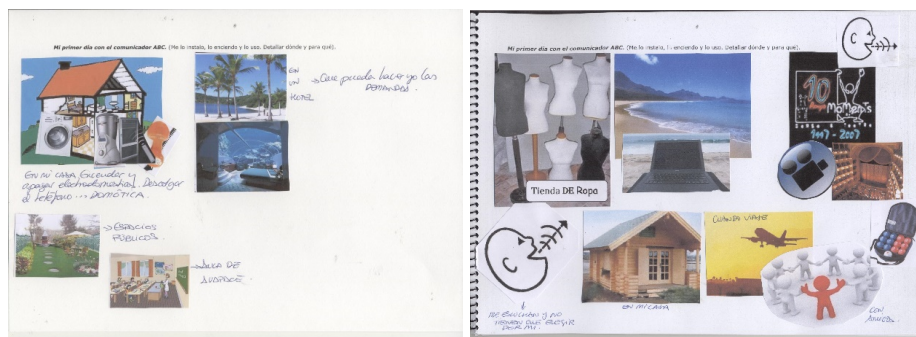 Mi primer día con el comunicador ABC. (Me lo instalo, lo enciendo y lo uso. Detallar dónde y para qué).
EN
UN
HOTEL
→ Que pueda hacer yo las
DEMANDAS.
EN MI CASA, Encender y
apagar electrodomésticos. Descolgar
el teléfono ... DOMÓTICA.
→ ESPACIOS
PÚBLICOS.
→ AULA DE
Mi primer día con el comunicador ABC. (Me lo instalo, lo enciendo y lo uso. Detallar dónde y para qué).
C
10
MOMENTS
1997 - 2007
Tienda DE Ropa
C
CUANDO VIAJE
EN MI CASA
ME ESCUCHAN Y NO
TIENEN QUE ELEGIR
POR MI.
CON